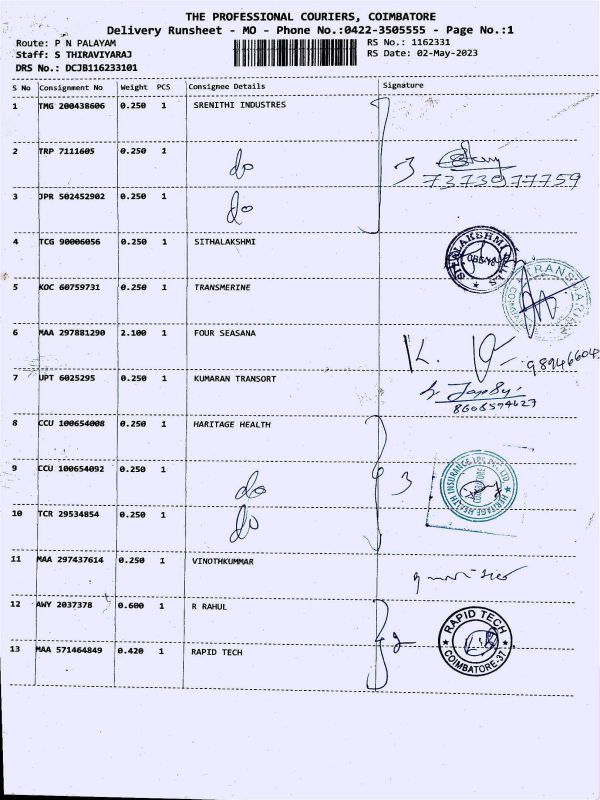 THE PROFESSIONAL COURIERS, COIMBATORE
Delivery Runsheet - MO - Phone No.:0422-3505555 - Page No.:1
Route: P N PALAYAM RS No.: 1162331
Staff: S THIRAVIYARAJ RS Date: 02-May-2023
DRS No.: DCJB116233101
S No Consignment No Weight PCS Consignee Details Signature
1 TMG 200438606 0.250 1 SRENITHI INDUSTRES
2 TRP 7111605 0.250 1 do 3
7373077759
3 JPR 502452902 0.250 1 do
4 TCG 90006056 0.250 1 SITHALAKSHMI
5 KOC 60759731 0.250 1 TRANSMERINE
6 MAA 297881290 2.100 1 FOUR SEASANA
98946604
7 UPT 6025295 0.250 1 KUMARAN TRANSORT
8608594627
8 CCU 100654008 0.250 1 HARITAGE HEALTH
9 CCU 100654092 0.250 1 do 3
HERITAGE HEALTH INSURANCE TPA PVT. LTD.
COIMBATORE
10 TCR 29534854 0.250 1 do
11 MAA 297437614 0.250 1 VINOTHKUMMAR
12 AWY 2037378 0.600 1 R RAHUL
RAPID TECH
COIMBATORE-37
13 MAA 571464849 0.420 1 RAPID TECH